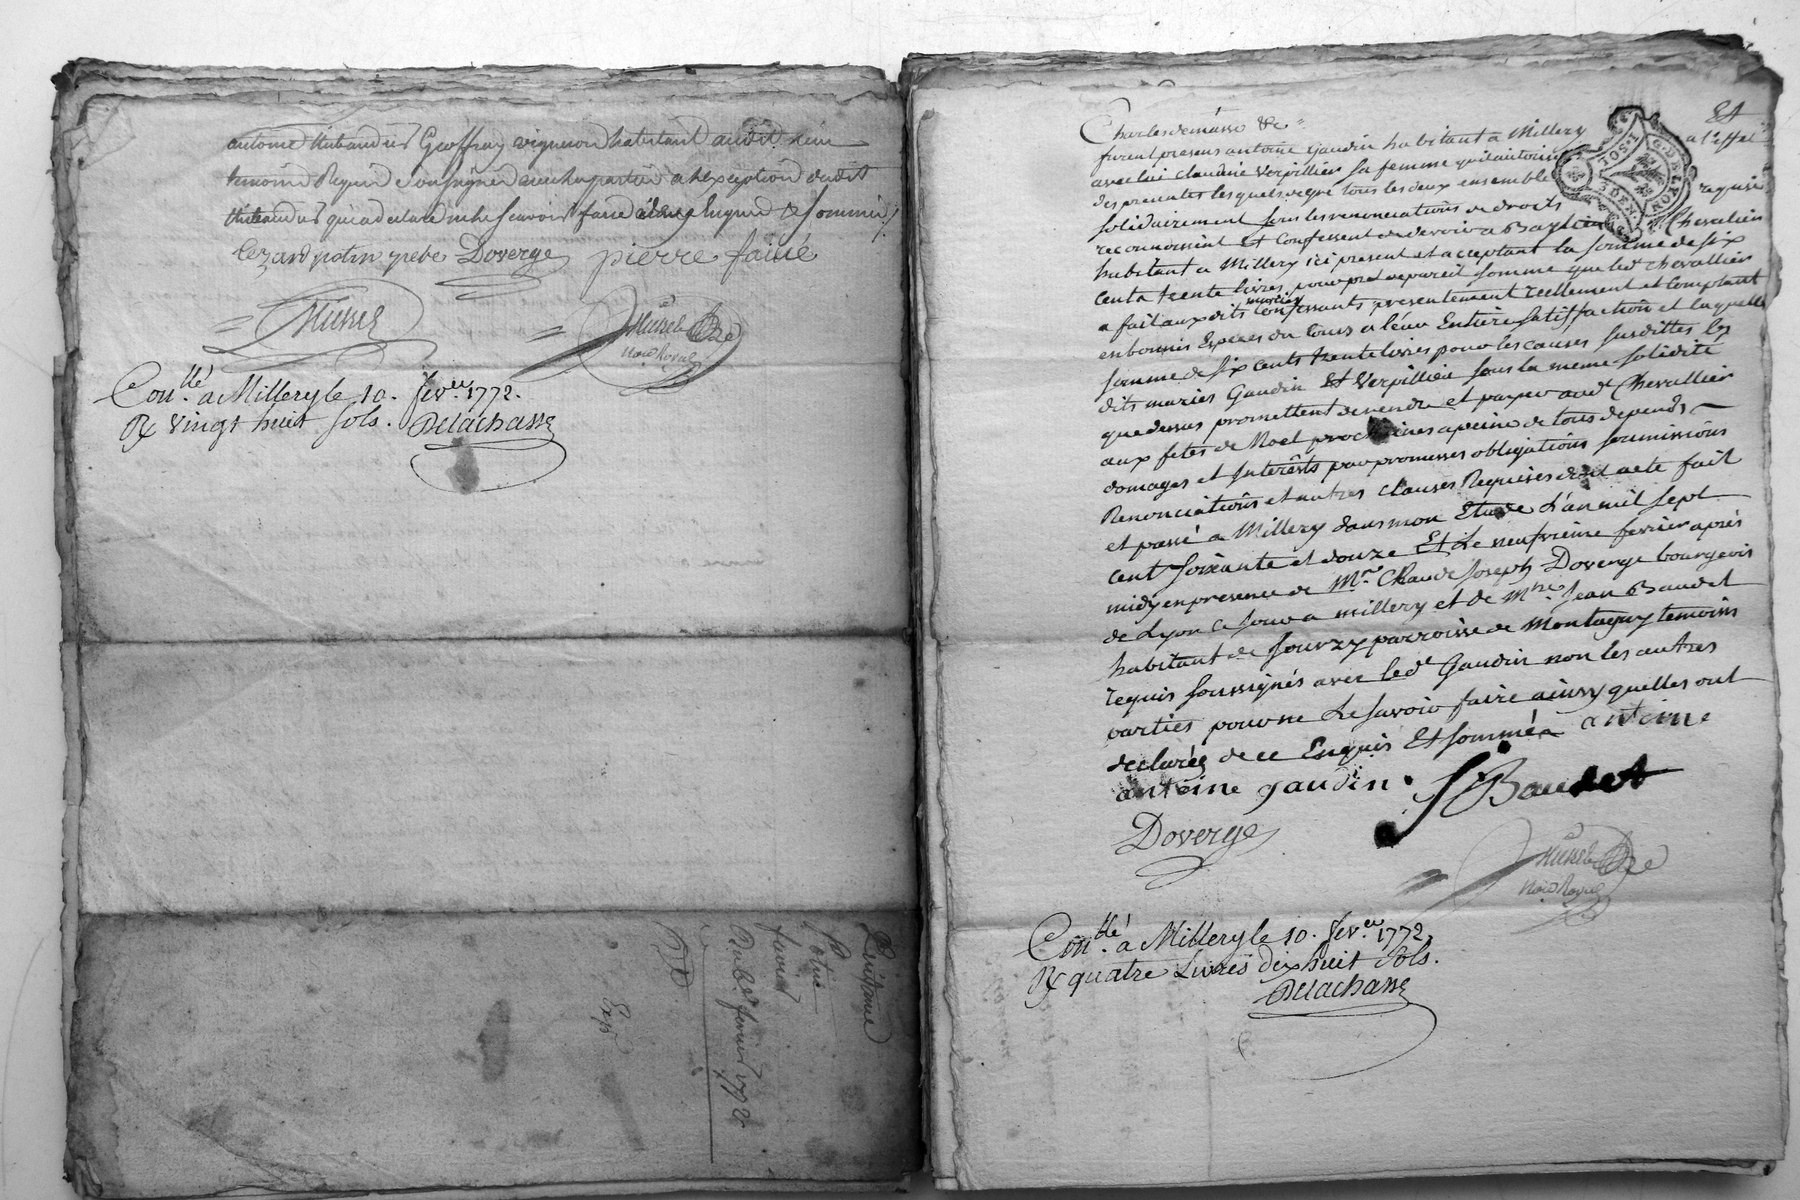 antoine thibaud et Geoffray vigneron habitant audit lieu
temoins Requis Soussignes avec les parties a lexception dudit
thibaud et qui a declare ne le scavoir faire de ce Enquis & Sommé /.
Cezard potin prebe Doverge pierre favié
Musset
Musset
Noire Royal
Con.llé a Millery le 10. fev.er 1772.
R vingt huit sols. Delachasse
Quittance
potin
favier
Du 8e fevrier 1772
Exp
Charles demasso &c
Et
furent presens antoine Gaudin habitant a Millery
avec lui Claudine Verpilliere sa femme quil autorise a l'effet
des presentes lesquels de gré tous les deux ensemble
solidairement sous les renonciations de droits requises
reconnoissent Et Confessent de devoir a Baptiste Chevalier
habitant a Millery ici present et acceptant la somme de six
cents trente livres pour pret de pareil somme que led Chevallier
mariés
a fait aux dits Confessants presentement réellement et Comptant
en bonnes Especes du Cours a leur Entiere satisfaction et laquelle
somme de six cents trente livres pour les causes susdittes les
dits mariés Gaudin Et Verpilliere sous la meme solidité
que dessus promettent de rendre et payer aud Chevallier
aux fetes de Noel prochaines a peine de tous depends
domages et Interêts par promesses obligations soumissions
Renonciations et autres clauses Requises dont acte fait
et passé a Millery dans mon Etude L'an mil sept
cent soixante et douze Et Le neufvieme fevrier aprés
midy en presence de Mre Claude Joseph Doverge bourgeois
de Lyon ce jour a millery et de Mre Jean Baudet
habitant de sourzy parroisse de Montagny temoins
requis soussignés avec led Gaudin non les autres
parties pour ne Le savoir faire ainsy quelles ont
declarés de ce Enquis Et sommés antoine
antoine gaudin. J Baudet
Doverge
Musset
Noire Royal
Con.llé a Millery le 10. fev.er 1772.
R quatre Livres dix huit sols.
Delachasse